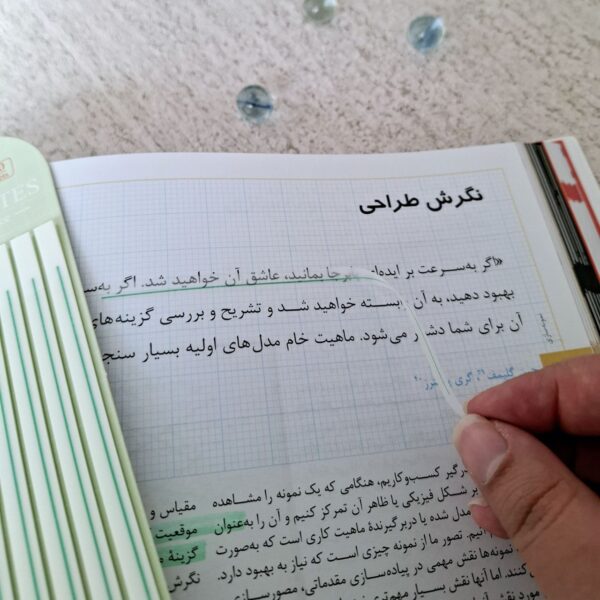 TES
نگرش طراحی
«اگر به‌سرعت بر ایده‌ای پابرجا بمانید، عاشق آن خواهید شد. اگر به‌سـ
بهبود دهید، به آن وابسته خواهید شد و تشریح و بررسی گزینه‌های
آن برای شما دشوار می‌شود. ماهیت خام مدل‌های اولیه بسیار سنجـ
گلیمف
گری
درگیر کسب‌وکاریم، هنگامی که یک نمونه را مشاهده
شکل فیزیکی یا ظاهر آن تمرکز کنیم و آن را به‌عنوان
مدل شده یا دربرگیرندهٔ ماهیت کاری است که به‌صورت
تصور ما از نمونه چیزی است که نیاز به بهبود دارد.
نمونه‌ها نقش مهمی در پیاده‌سازی مقدماتی، مصورسازی
کنند. اما آنها نقش بسیار مهم‌تری
مورد نقش
مقیاس و
موقعیت
گزینهٔ
نگرش